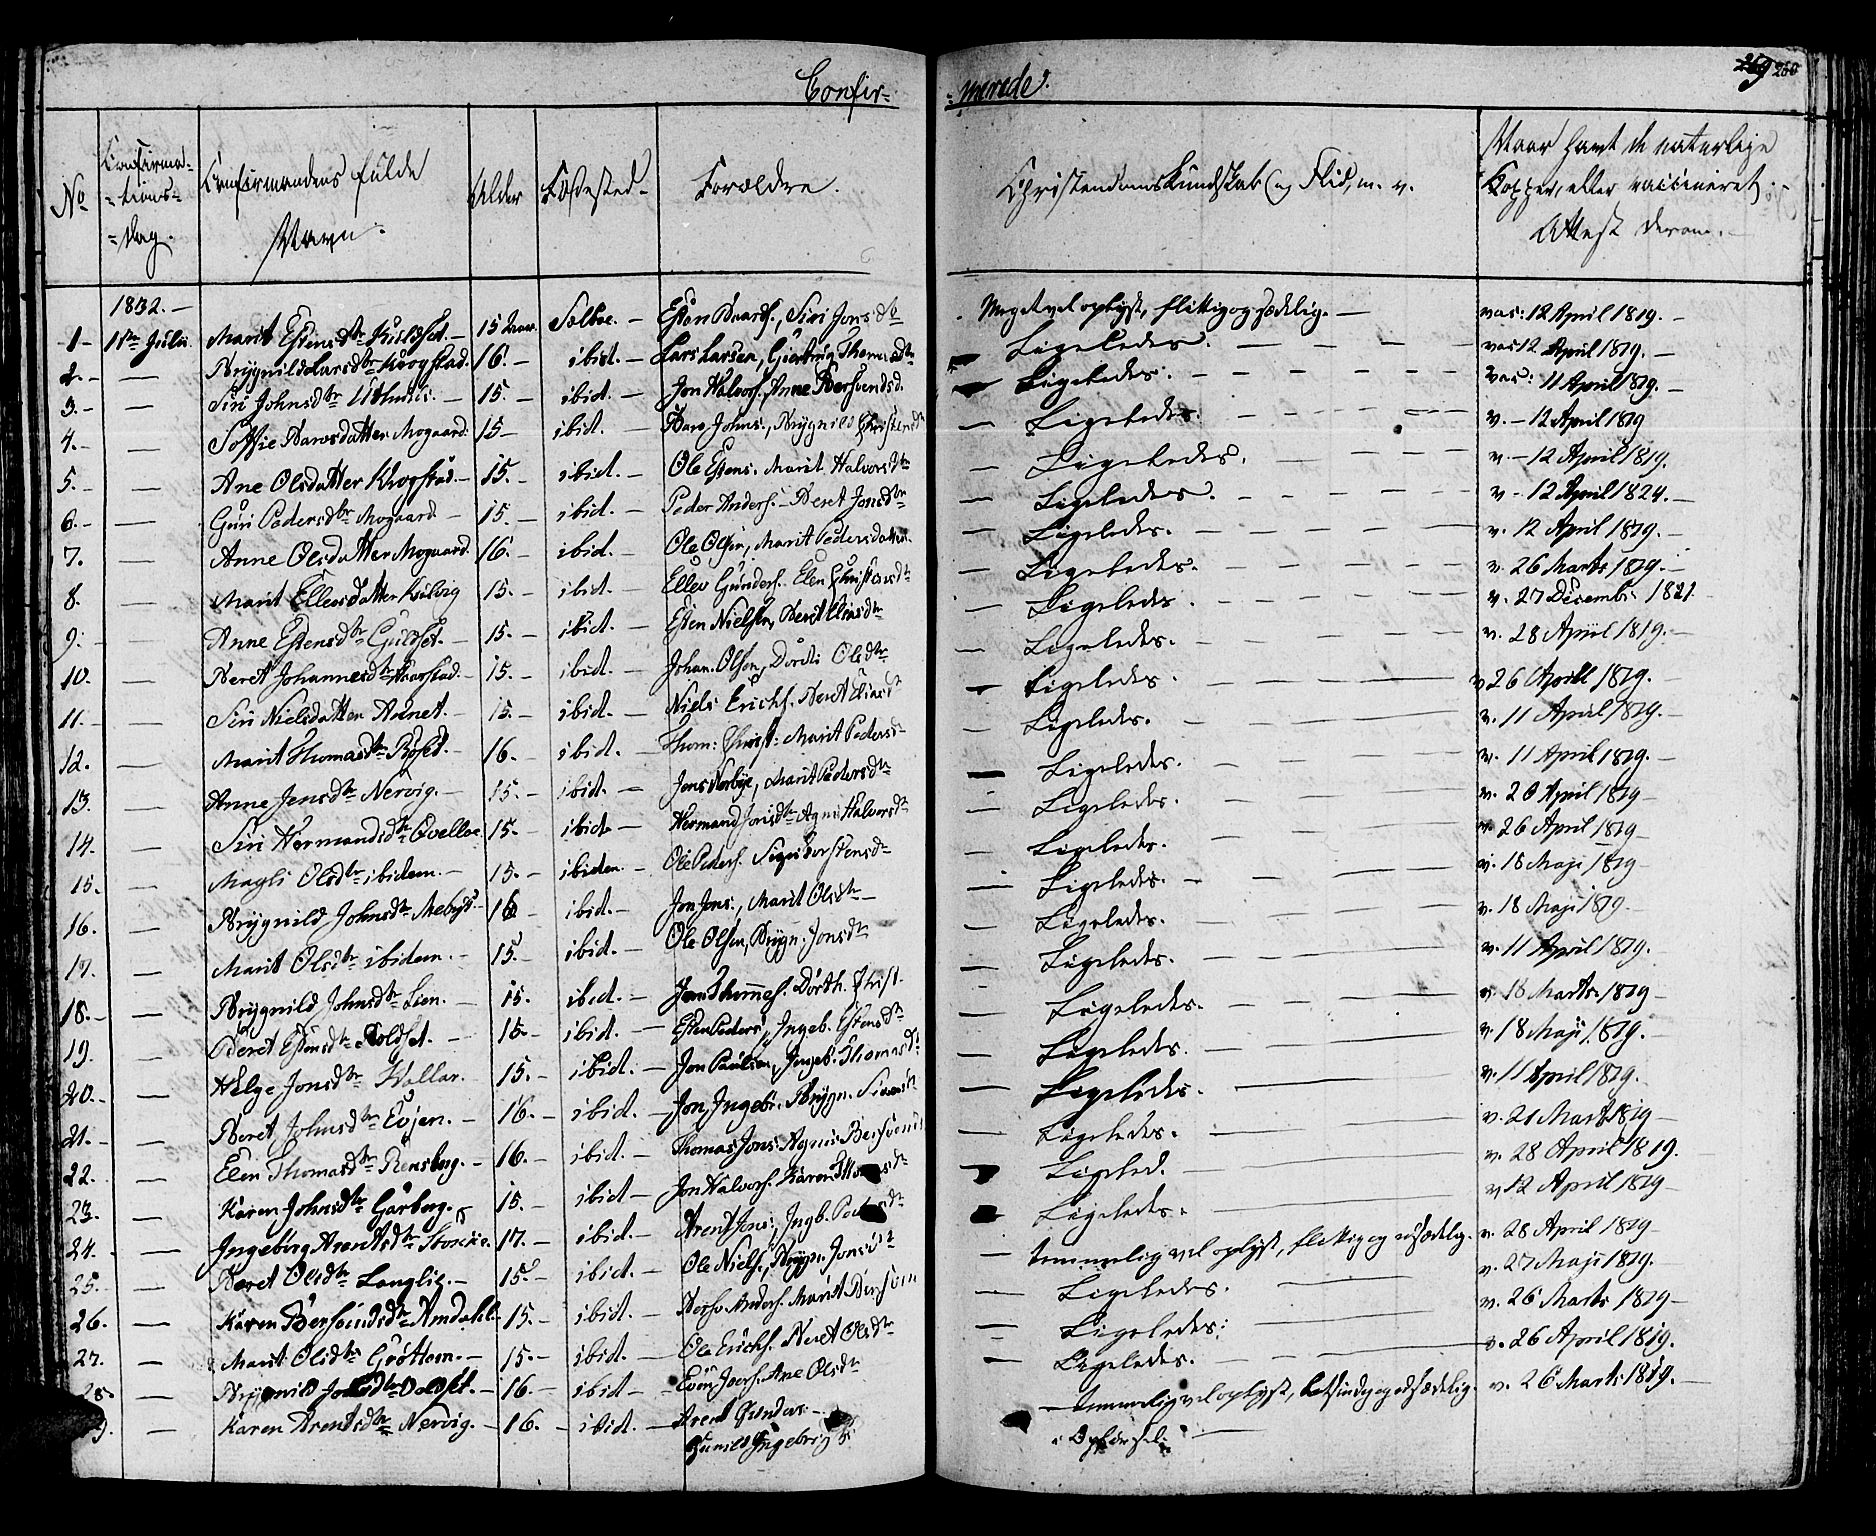 Confir-
-merede.
269 260
No
Confirma-
-tions-
-Dag.
Confirmandens fulde
Navn.
Alder
Fødested.
Forældre.
Christendoms Kundskab og Flid, m. v.
Naar havt de naturlige
Kopper, eller vaccineret.
Attest derom.
1832.
1 - 11te Julii Marit Estensdtr Kulset. - 15 Aar. Selboe. - Esten Baards., Siri Jonsdtr Meget vel oplyst, flittig og sædelig. - vac: 12 April 1819. -
2. - — Brygnild Larsdtr Krogstad. 16. - ibid. - Lars Larsen, Gjertrug Thomasdtr — Ligeledes. vac 12 April 1819. -
3. - — Siri Johnsdtr Uthuus. - 15. - ibid. - Jon Halvors. Anne Bersvendsd. — Ligeledes. vac: 11 April 1819. -
4. - — Soffie Baarsdatter Mogaard. 15 - ibid. - Baar Johns., Brygnild Christensdtr — Ligeledes. v. - 12 April 1819
5. - — Ane Olsdatter Krogstad. - 15. - ibid. - Ole Estens. Marit Halvorsdtr — Ligeledes. v. - 12 April 1819.
6. - — Guri Pedersdtr Mogaard - 15. - ibid. - Peder Anders. - Beret Jonsdtr — Ligeledes. v - 12 April 1824. -
7. — Anne Olsdatter Mogaard. 16. - ibid. - Ole Olsen, Marit Pedersdatter. — Ligeledes. v. 12 April 1819. -
8. — Marit Ellevsdatter Kulvig 15. - ibid. - Ellev Gunders. Elen Christensdtr — Ligeledes. v. 26 Marts 1819. -
9. — Anne Estensdtr Guldset. - 15. - ibid. - Esten Nielsen, Berit Eliasdtr — Ligeledes. v. 27 Decembr 1821
10. — Beret Johannesdtr Haarstad. - 15. - ibid. - Johan. Olsen, Dordi Olsdtr — Ligeledes. v. 28 April 1819. -
11. — Siri Nielsdatter Aunet. - 15. - ibid. - Niels Erichs. Beret Eliasdtr — Ligeledes. v 26 April 1819.
12. — Marit Thomasdtr Roset. - 16. - ibid. - Thom: Christ: Marit Pedersd- — Ligeledes. v. 11 April 1819. -
13. — Anne Jensdtr Nervig. - 15. - ibid. - Jens Norbye, Marit Pedersdtr — Ligeledes. v. 11 April 1819. -
14. — Siri Hermandsdtr Qvelloe 15. - ibid. - Hermand Jonsdtr Agnis Halvorsdtr — Ligeledes. v. 26 April 1819 -
15. — Magli Olsdtr ibidem. - 15. - ibidem. - Ole Peders. — Ligeledes. v. 26 April 1819 -
16. — Brygnild Johnsdtr Mebye. - 16 - ibid. - Jon Jons., Marit Olsdtr - — Ligeledes. v. 18 Maji 1819 -
17. — Marit Olsdtr ibidem. - 15. - ibid. - Ole Olsen, Brygn. Jonsdtr — Ligeledes. v. 18 Maji 1819. -
18. - — Brygnild Johnsdtr Lien. - 15. - ibid. - Jon Thomes. Dorth. Christ. — Ligeledes. v. 11 April 1819.
19. — Beret Estensdtr Roldset. - 15. - ibid. - Esten Peders., Ingeb. Estensdtr — Ligeledes. v. 18 Marts 1819 -
20. - — Helge Jonsdtr Wallar. 15. - ibid. - Jon Paulsen, Ingeb. Thomasdtr — Ligeledes. v. 18 Maji 1819.
21. - — Beret Johnsdtr Evjen. - 16. - ibid. - Jon Ingebr. Brygn. — Ligeledes. v. 11 April 1819.
22. — Elen Thomasdtr Rensberg. - 16. - ibid. - Thomas Jons. Agnis Bersvend — Ligeledes. v. 21 Marts 1819 -
23. — Karen Johnsdtr Garberg. 15. - ibid - Jon Halvors. Karen Thomasdtr — Ligeled. v. 28 April 1819.
24. — Ingeborg Arentsdtr 17. - ibid. - Arent Jons., Ingb. Pedersdtr — Ligeledes. v 12 April 1819 -
25. — Beret Olsdtr Langlie. - 15. - ibid. - Ole Niels., Brygn. Jonsdtr — temmelig vel oplyst, flittig og sædelig. v. 28 April 1819 -
26. — Karen Bersvendsdtr Amdahl. 15. - ibid. - Bersv. Anders. Marit Bersven — Ligeledes. v. 27 Maji 1819.
27. — Marit Olsdtr Grøttem. - 15. - ibid. - Ole Erichs. Beret Olsdtr — Ligeledes. v. 26 Marts 1819 -
28. — Brygnild - 16. - ibid - Ane Olsdtr — Ligeledes. v. 26 April 1819.
9. — Karen Arentsdtr Nervig. - 16. - ibid. - Arent Gundersen - temmelig vel oplyst, og sædelig. v. 26 Marts 1819.
Gunild Ingebrigtsd. i Opførsel.